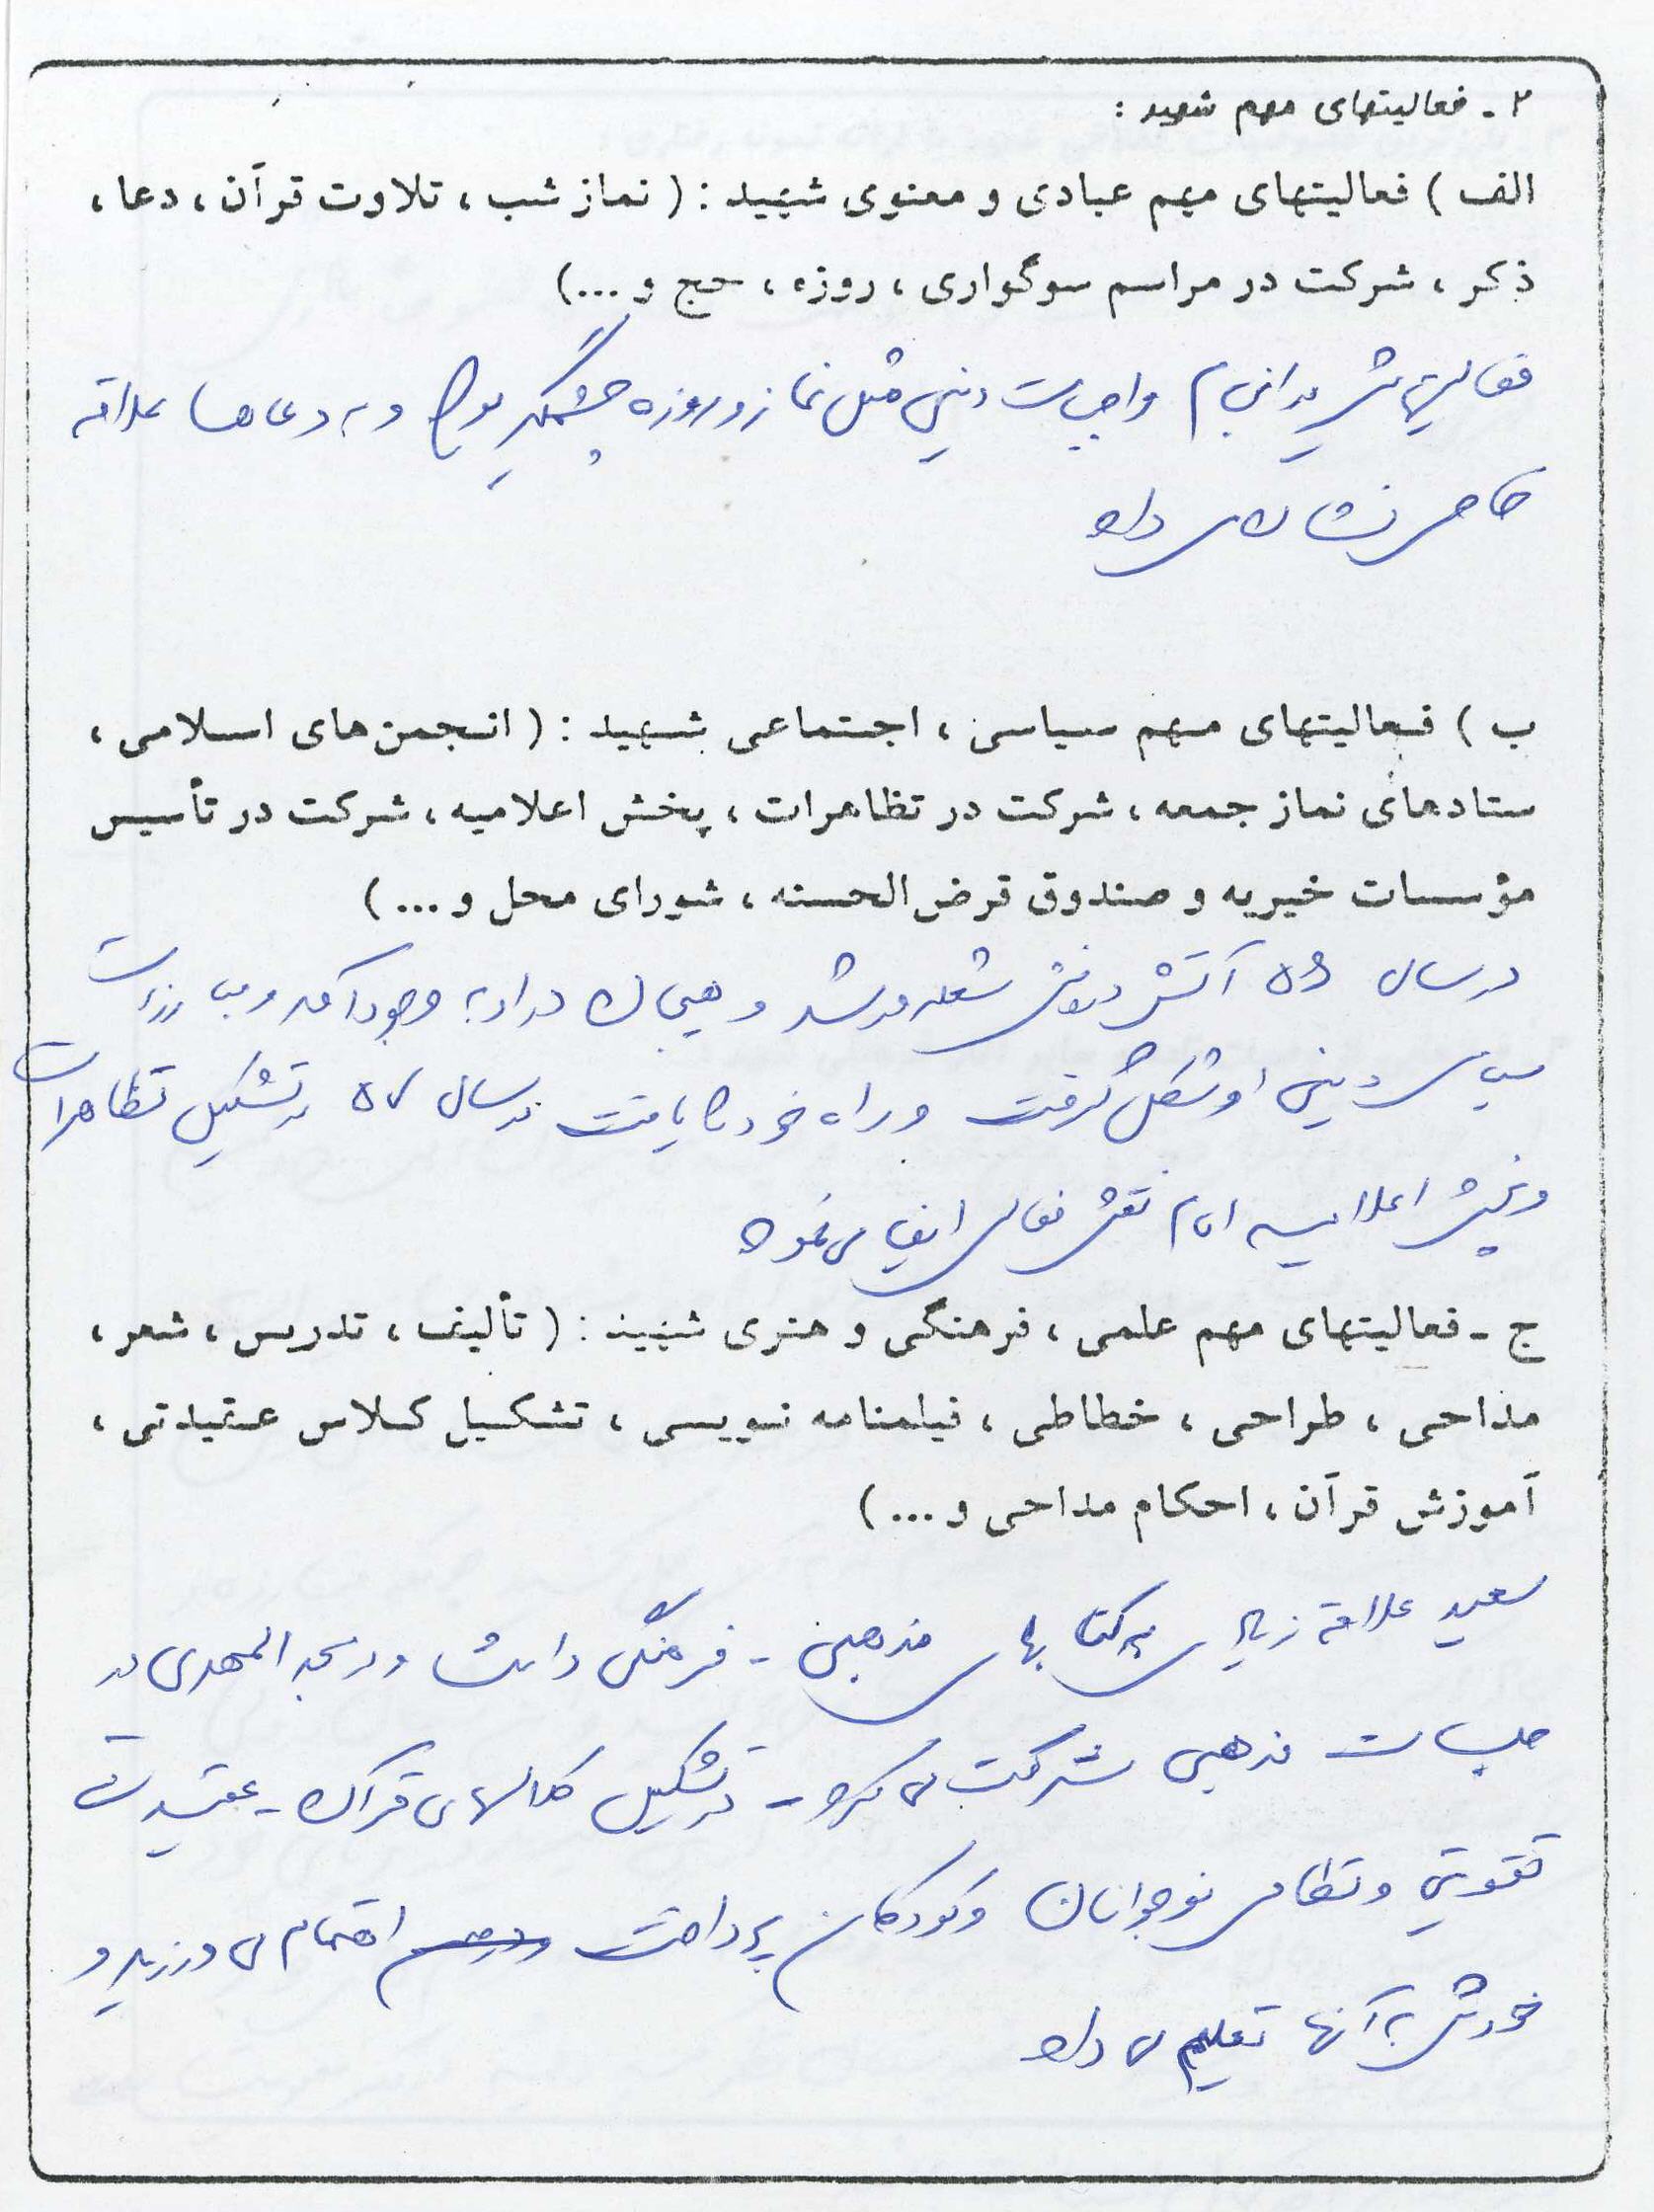 ۲ - فعالیتهای مهم شهید :
الف ) فعالیتهای مهم عبادی و معنوی شهید : ( نماز شب ، تلاوت قرآن ، دعا ،
ذکر ، شرکت در مراسم سوگواری ، روزه ، حج و ...)
فعالیتهایش در انجام واجبات دینی مثل نماز و روزه چشمگیر بود و به دعاها علاقه
خاصی نشان می داد
ب ) فعالیتهای مهم سیاسی ، اجتماعی شهید : ( انجمن‌های اسلامی ،
ستادهای نماز جمعه ، شرکت در تظاهرات ، پخش اعلامیه ، شرکت در تأسیس
مؤسسات خیریه و صندوق قرض‌الحسنه ، شورای محل و ... )
در سال ۵۶ آتش درونش شعله ور شد و هیجان در او به وجود آمد و
سیاسی دینی او شکل گرفت و راه خود را یافت در سال ۵۷ در تشکیل تظاهرات
و پخش اعلامیه امام نقش فعالی ایفا می نمود
ج - فعالیتهای مهم علمی ، فرهنگی و هنری شهید : ( تألیف ، تدریس ، شعر ،
مداحی ، طراحی ، خطاطی ، فیلمنامه نویسی ، تشکیل کلاس عقیدتی ،
آموزش قرآن ، احکام مداحی و ... )
سعید علاقه زیادی به کتابهای مذهبی - فرهنگی داشت و در مسجد المهدی در
جلسات مذهبی شرکت می کرد - در تشکیل کلاسهای قرآن - عقیدتی
تقویتی و نظامی نوجوانان و کودکان پرداخت اهتمام می ورزید و
خودش به آنها تعلیم می داد